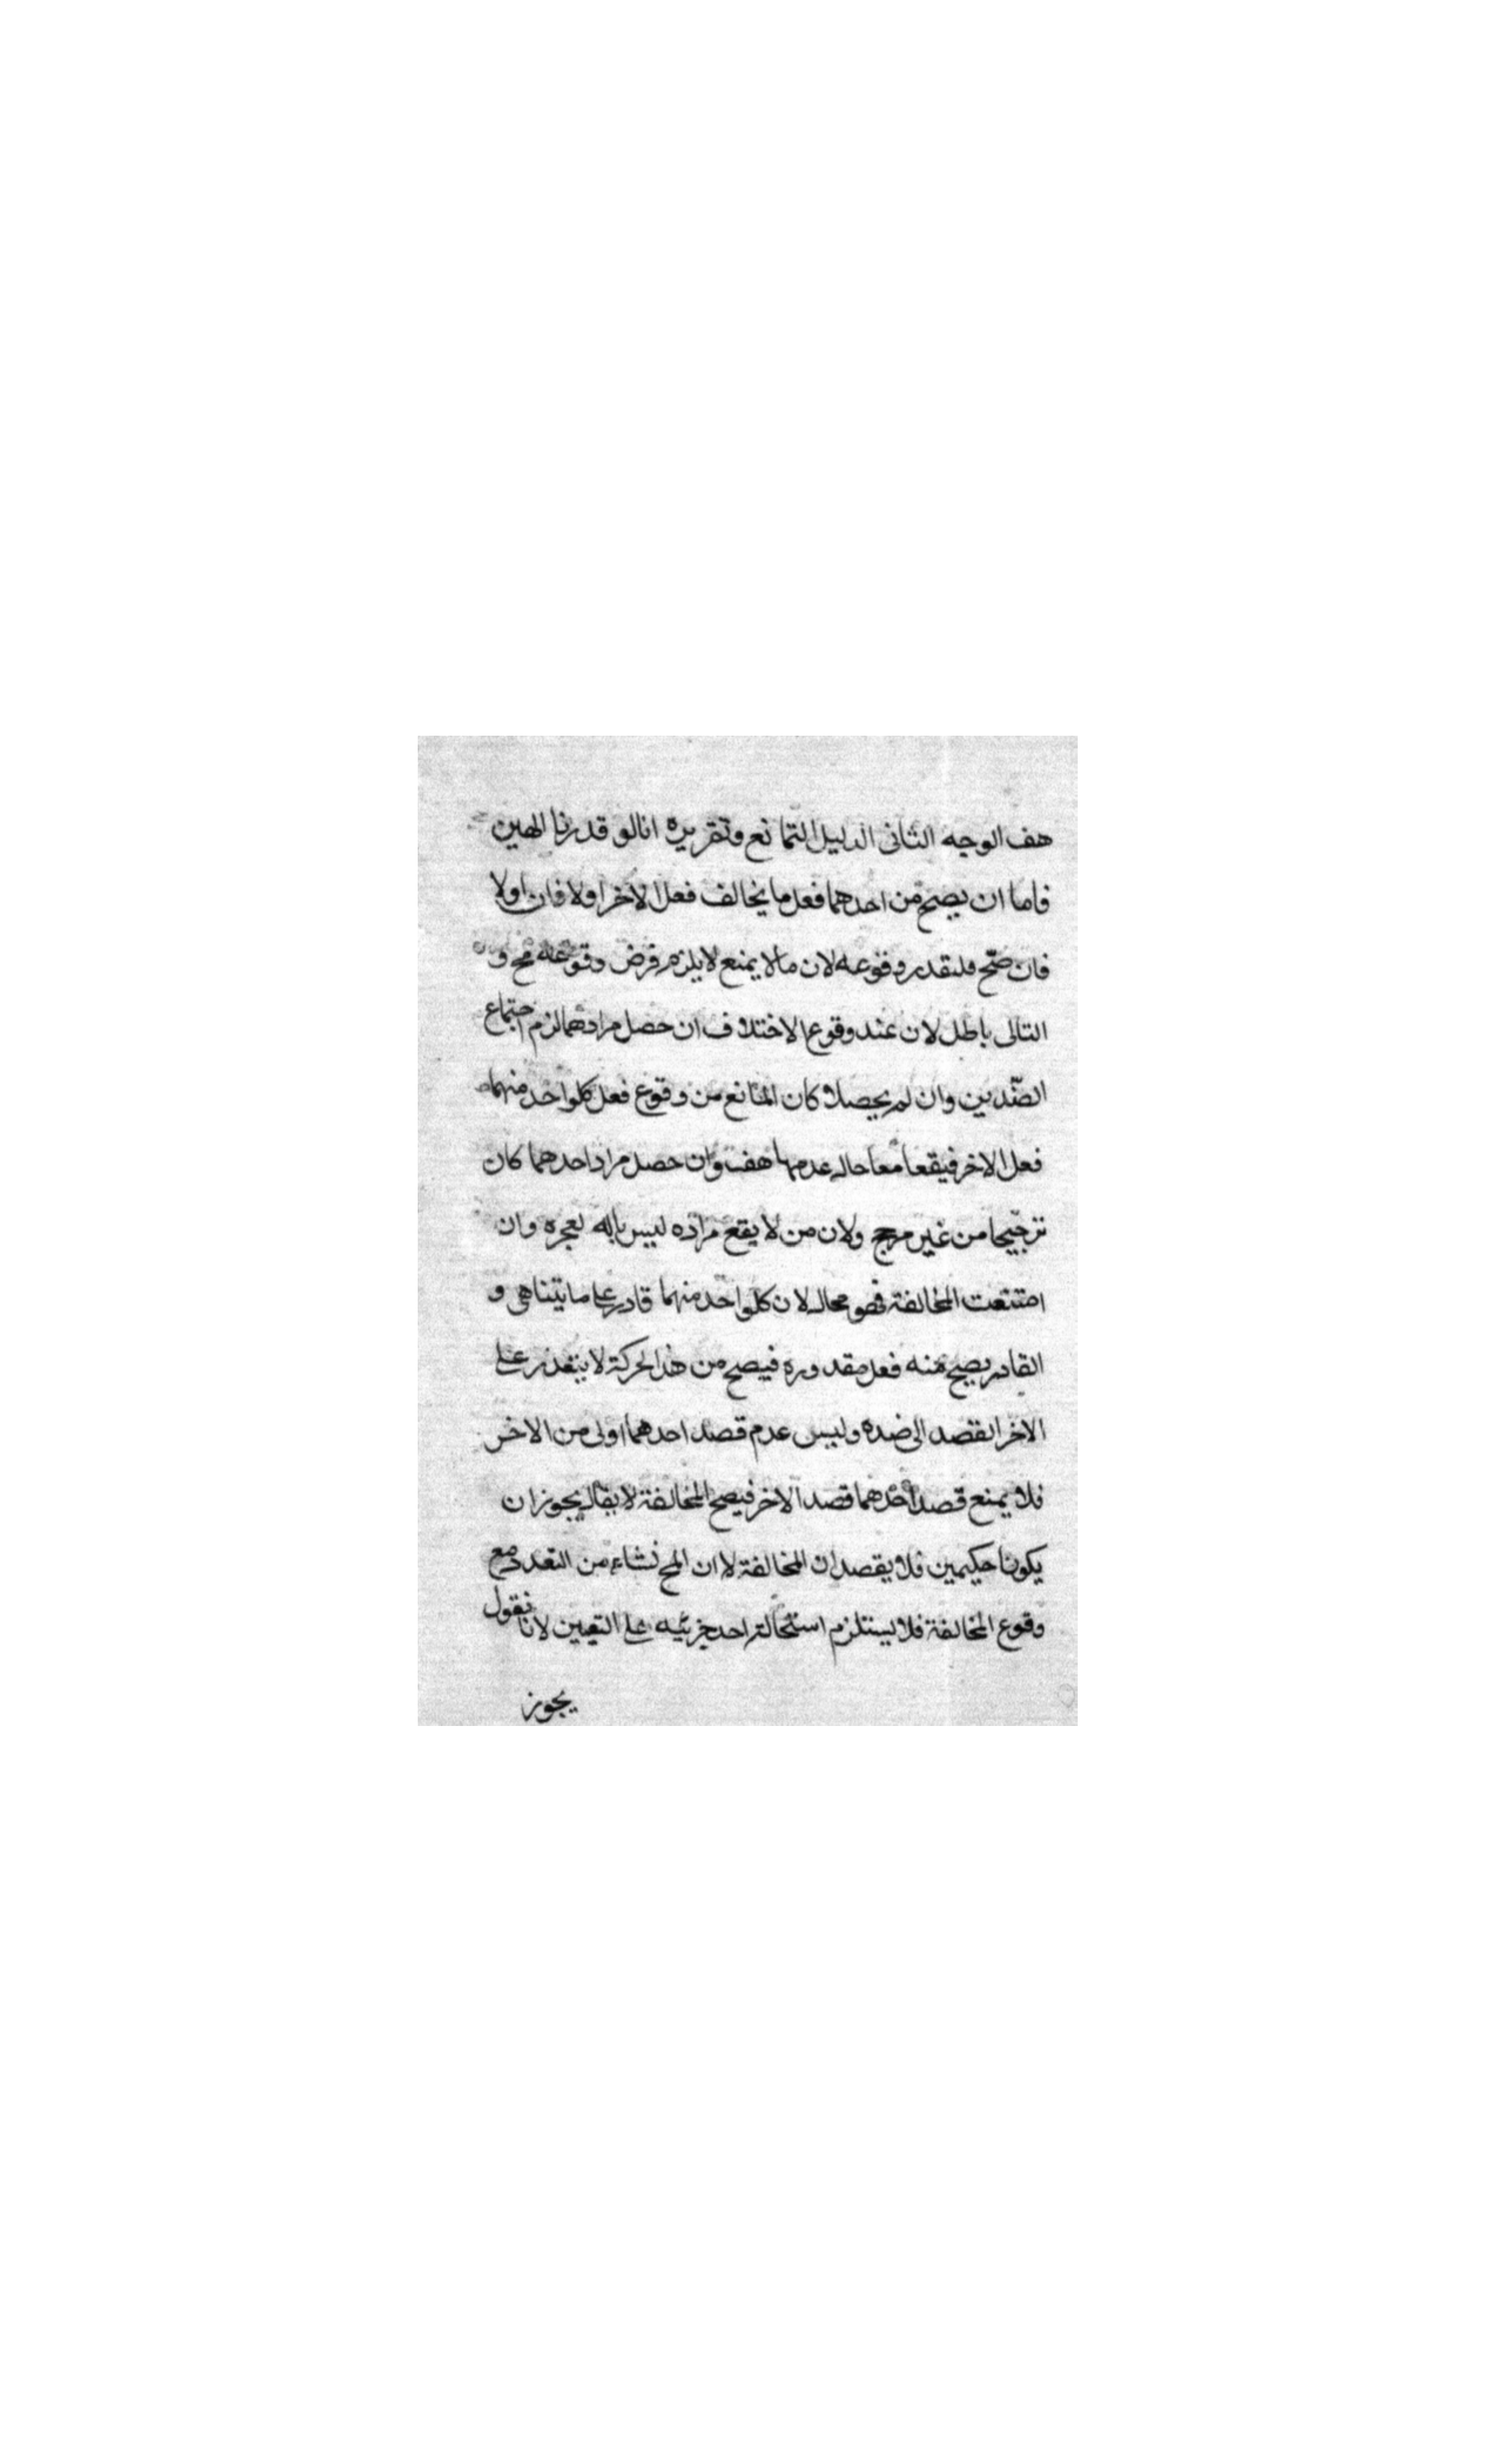 هف الوجه الثانى الدليل التمانع وتقريره انا لو قدرنا الهين
فاما ان يصح من احدهما فعل ما يخالف فعل الاخر اولا فان اولا
فان صح فلنقدر وقوعه لان ما لا يمنع لا يلزم فرض وقوعه مح و
التالى باطل لان عند وقوع الاختلاف ان حصل مرادهما لزم اجتماع
الضدين وان لم يحصلا كان المانع من وقوع فعل كلواحد منهما
فعل الاخر فيقعا معا حال عدمهما هف وان حصل مراد احدهما كان
ترجيحا من غير مرجح ولان من لا يقع مراده ليس باله لعجزه وان
امتنعت المخالفة فهو محال لان كلواحد منهما قادر على ما يتناهى و
القادر يصح منه فعل مقدوره فيصح من هذا لحركة لا يتعذر على
الاخر القصد الى ضده وليس عدم قصد احدهما اولى من الاخر
فلا يمنع قصد احدهما قصد الاخر فيصح المخالفة لا يقال يجوز ان
يكونا حكيمين فلا يقصدان المخالفة لا ان المح نشاء من التعدد مع
وقوع المخالفة فلا يستلزم استحالة احد جزئيه على التعيين لانا نقول
يجوز